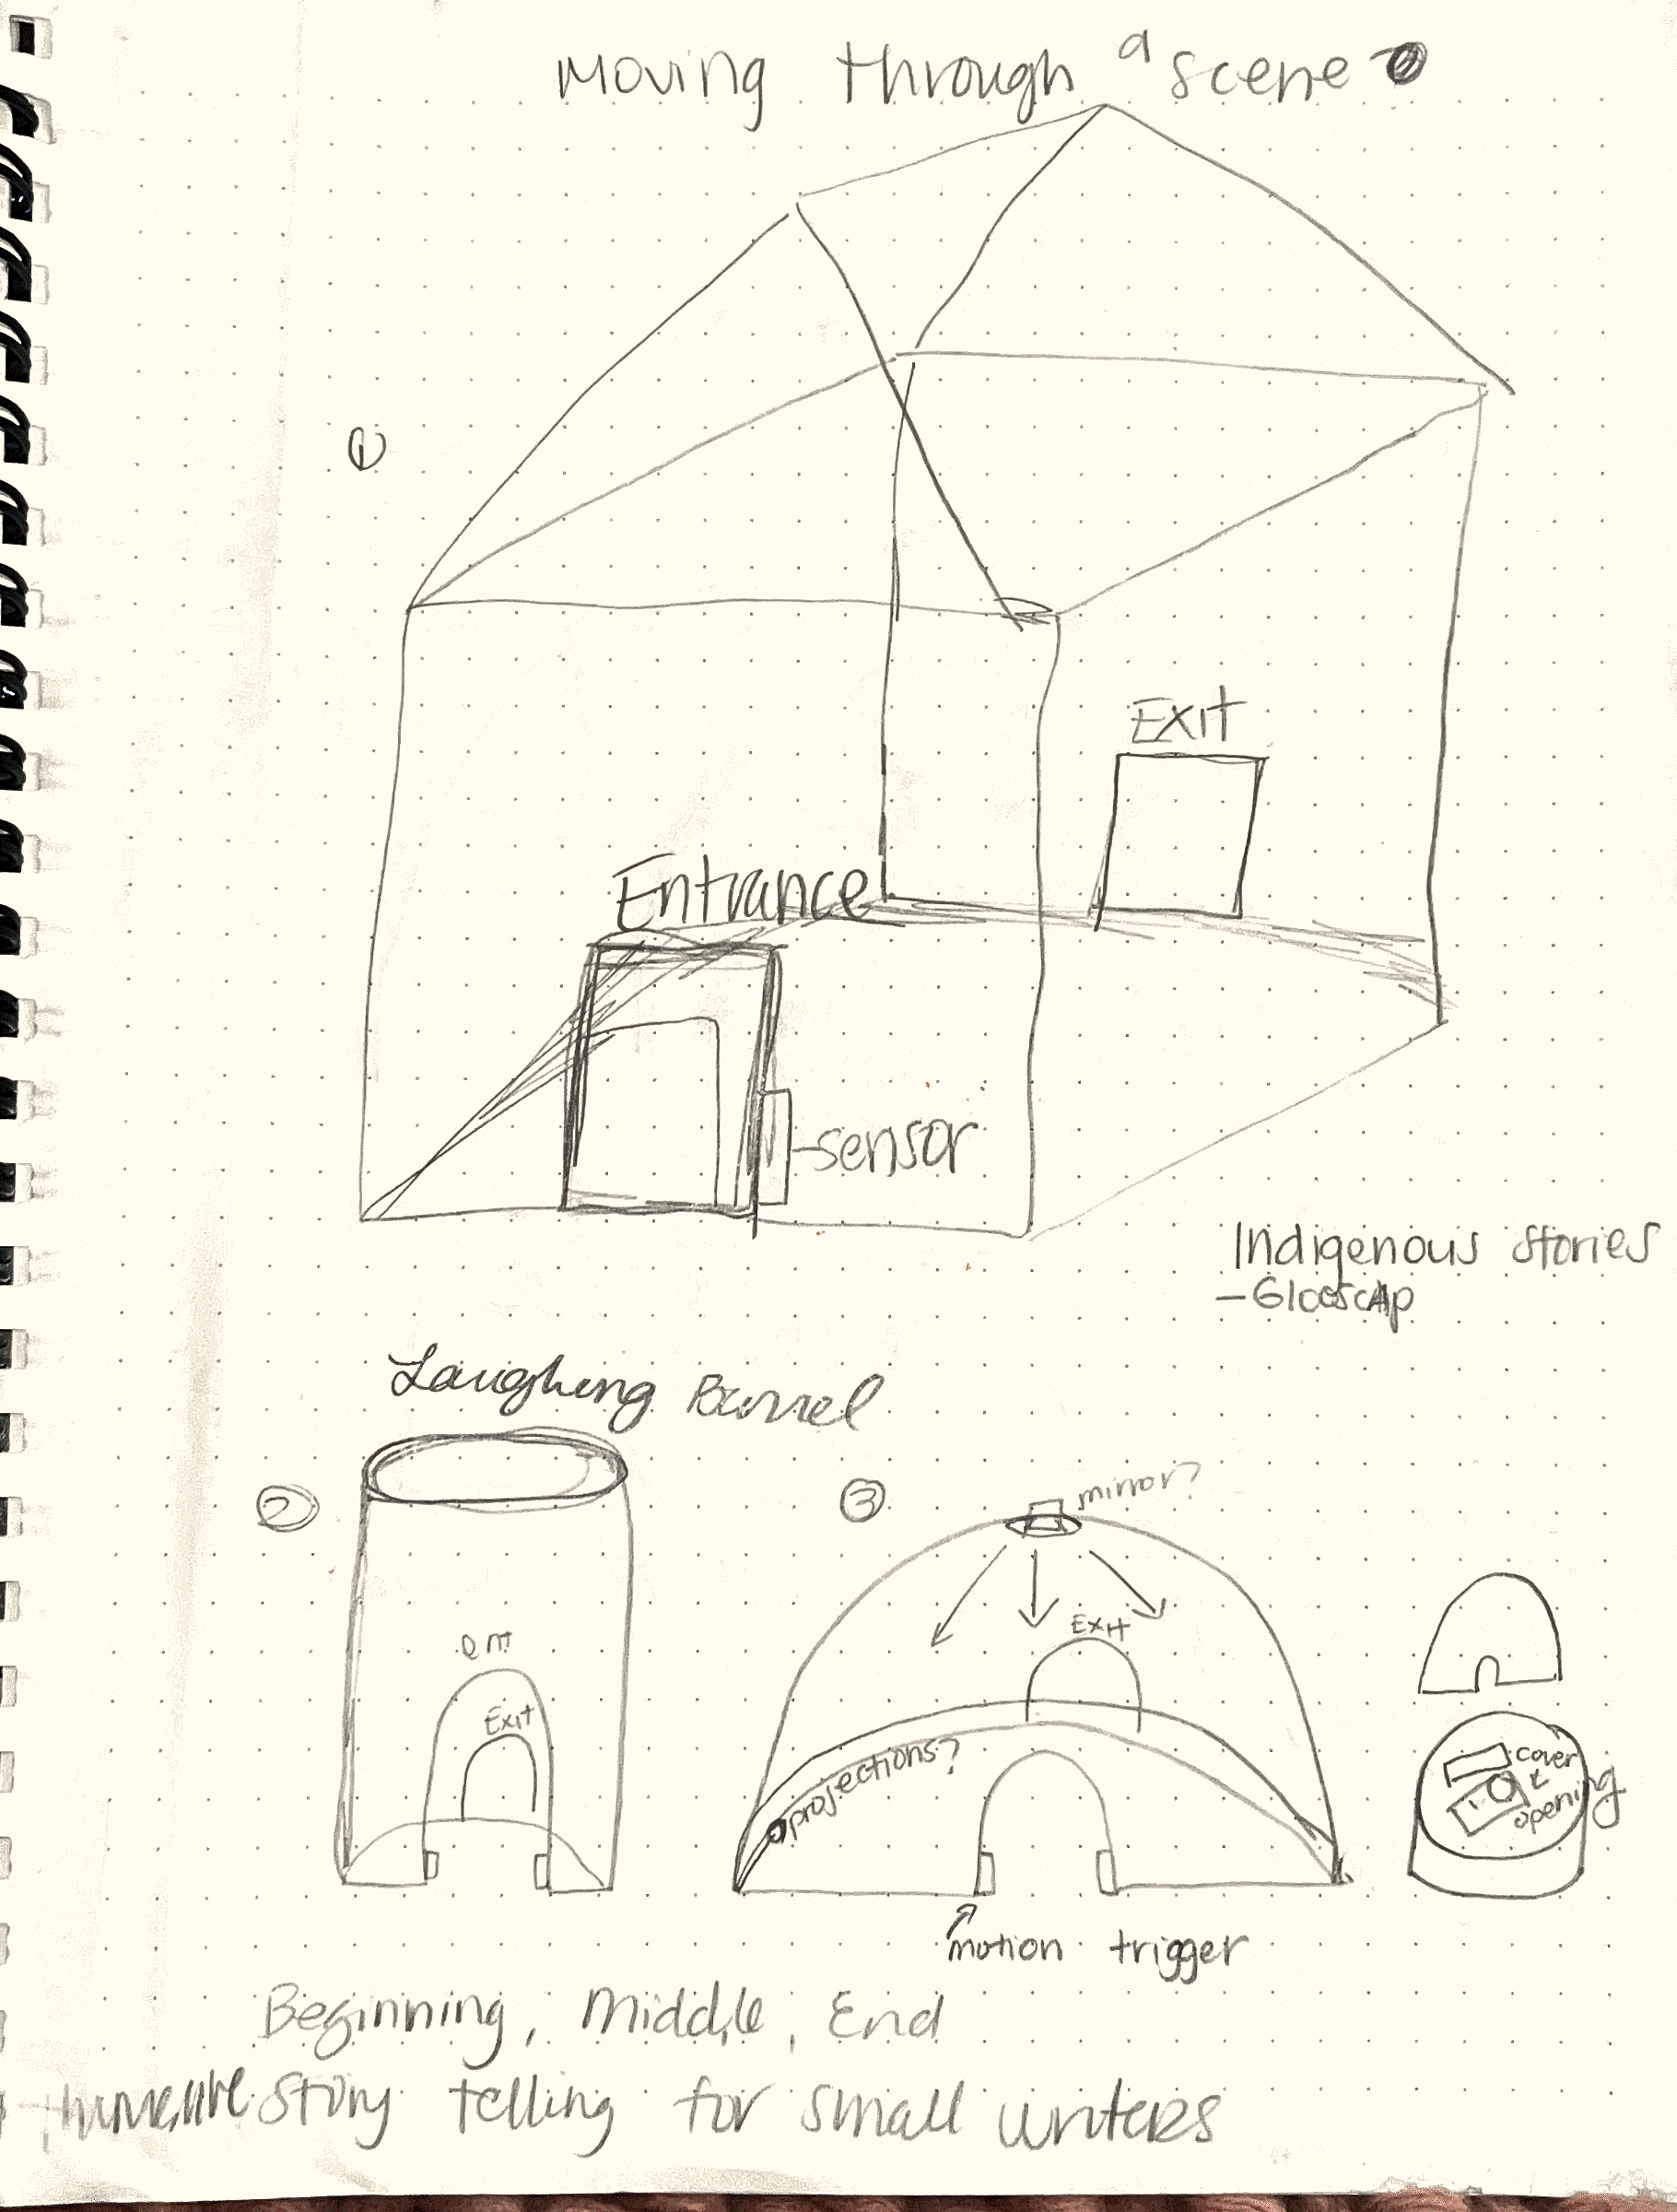 Moving through a scene
①
Exit
Entrance
-sensor
Indigenous stories
- Glooscap
Laughing Barrel
②
③
mirror?
ent
Exit
Exit
projections?
cover
&
opening
motion trigger
Beginning, Middle, End
story telling for small writers